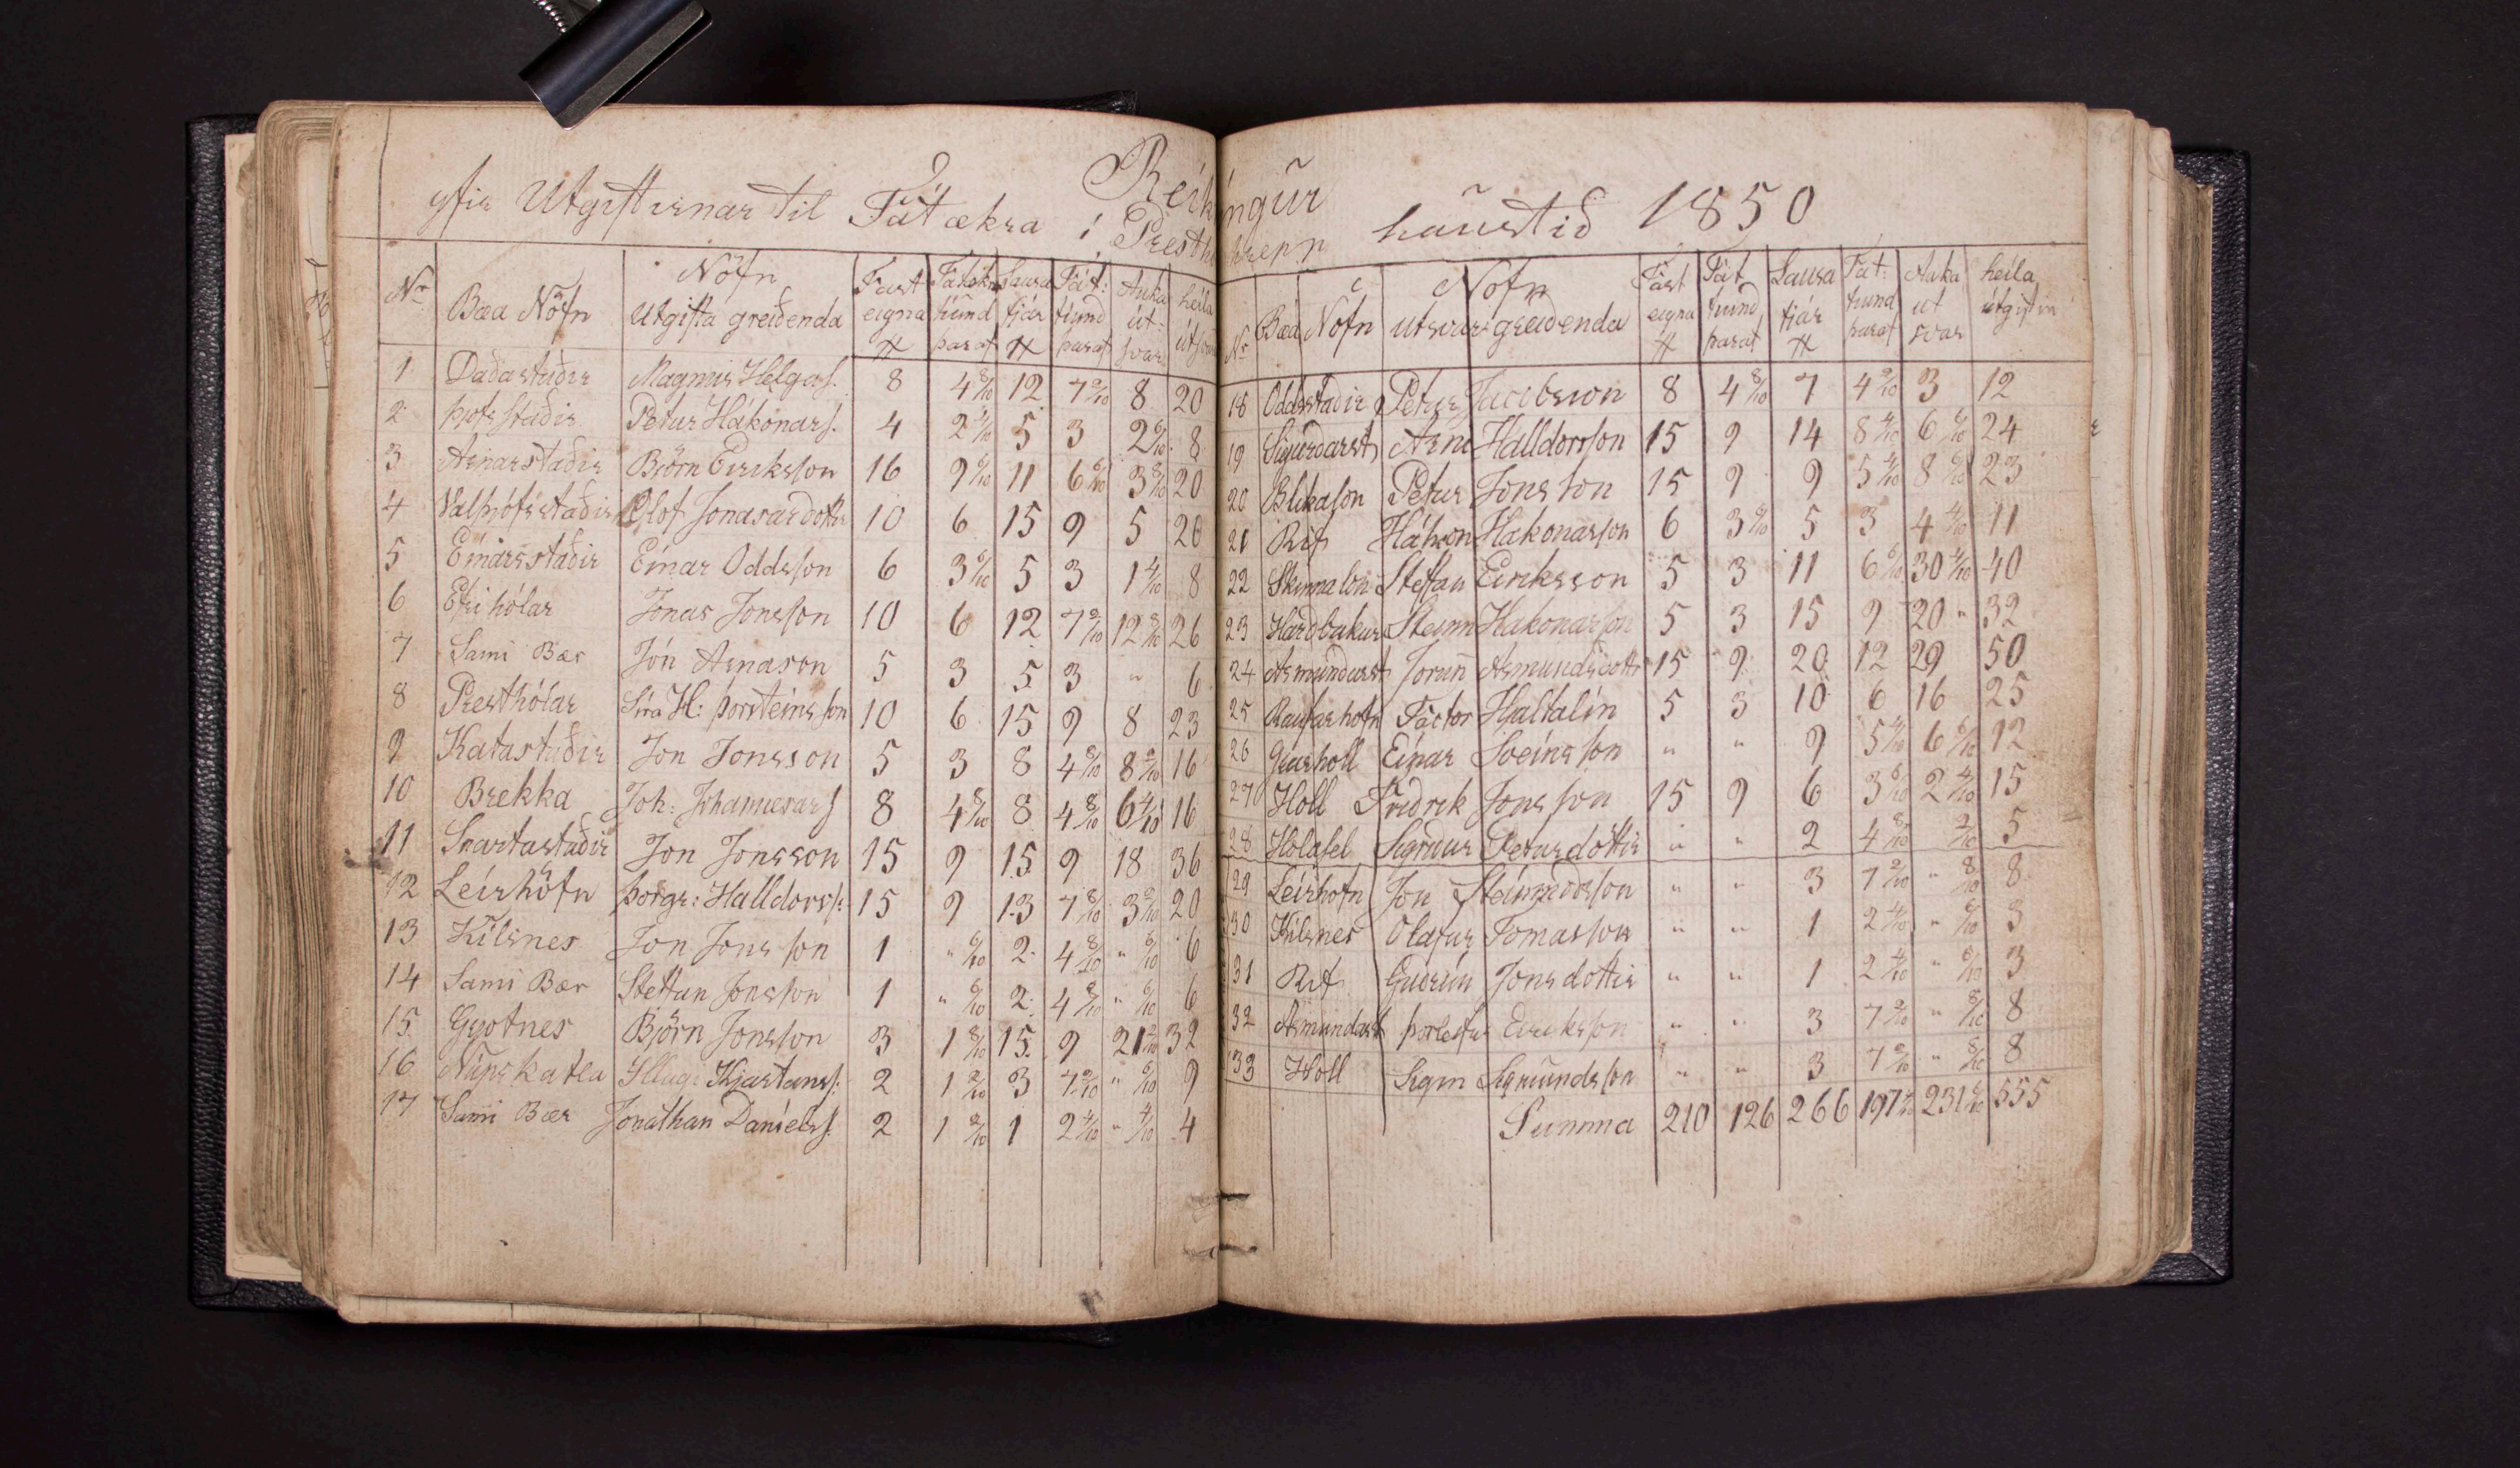 Reikningur
yfir Utgiftirnar til Fátækra í Presthrepp haustið 1850
Nr Bæa Nöfn Nöfn Utgifta greiðenda Fast eigna # Fátækra tíund þaraf Lausa fjár # Fát: tíund þaraf Auka út- svar heila útsvar
1 Daðastaðir Magnus Helgas. 8 4 8/10 12 7 2/10 8 20
2 Þjofsstaðir Petur Hákonars. 4 2 4/10 5 3 2 6/10 8
3 Arnarstaðir Björn Eiriksson 16 9 6/10 11 6 6/10 3 8/10 20
4 Valþjófsstaðir Olof Jonasardottir 10 6 15 9 5 20
5 Einarsstaðir Einar Oddsson 6 3 6/10 5 3 1 4/10 8
6 Efrihólar Jonas Jonsson 10 6 12 7 2/10 12 8/10 26
7 Sami Bær Jón Arnason 5 3 5 3 " 6
8 Presthólar Síra H: Þorsteinsson 10 6 15 9 8 23
9 Katastaðir Jon Jonsson 5 3 8 4 8/10 8 2/10 16
10 Brekka Joh: Johannesars 8 4 8/10 8 4 8/10 6 4/10 16
11 Snartastaðir Jon Jonsson 15 9 15 9 18 36
12 Leirhöfn Þorgr: Halldorss: 15 9 13 7 8/10 3 2/10 20
13 Kílsnes Jon Jonsson 1 " 6/10 2 4 8/10 " 6/10 6
14 Sami Bær Steffan Jonsson 1 " 6/10 2 4 8/10 " 6/10 6
15 Gyotnes Björn Jonsson 3 1 8/10 15 9 21 2/10 32
16 Núpskatla Illugi Kjartanss: 2 1 2/10 3 7 2/10 " 6/10 9
17 Sami Bær Jonathan Daníelss. 2 1 2/10 1 2 4/10 " 4/10 4
Nr Bæa Nöfn Nöfn utsvars greiðenda Fast eigna # Fát tíund þaraf Lausa fjár # Fát: tíund þaraf Auka út svar heila útgiftin
18 Oddsstaðir Petur Jacobsson 8 4 8/10 7 4 2/10 3 12
19 Sigurdarst Arni Halldorsson 15 9 14 8 4/10 6 6/10 24
20 Blikalon Petur Jonsson 15 9 9 5 4/10 8 6/10 23
21 Rif Hákon Hakonarson 6 3 6/10 5 3 4 4/10 11
22 Skinnalon Steffan Eiriksson 5 3 11 6 6/10 30 4/10 40
23 Hardbakur Steinn Hakonarson 5 3 15 9 20 " 32
24 Asmundarst Jorun Asmundsdottr 15 9 20 12 29 50
25 Raufarhofn Factor Hjaltalín 5 3 10 6 16 25
26 Grashóll Einar Sveinsson " " 9 5 4/10 6 6/10 12
27 Holl Fridrik Jonsson 15 9 6 3 6/10 2 4/10 15
28 Holasel Sigridur Petursdóttir " " 2 4 8/10 2/10 5
29 Leirhofn Jon Steinmodsson " " 3 7 2/10 " 8/10 8
30 Kilsnes Olafur Tomasson " " 1 2 4/10 " 6/10 3
31 Rif Gudrún Jonsdottir " " 1 2 4/10 " 6/10 3
32 Asmundarst Þorleifur Eiriksson " " 3 7 2/10 " 8/10 8
33 Holl Sigm Sigmundsson " " 3 7 2/10 " 8/10 8
Summa 210 126 266 197 4/10 231 6/10 555